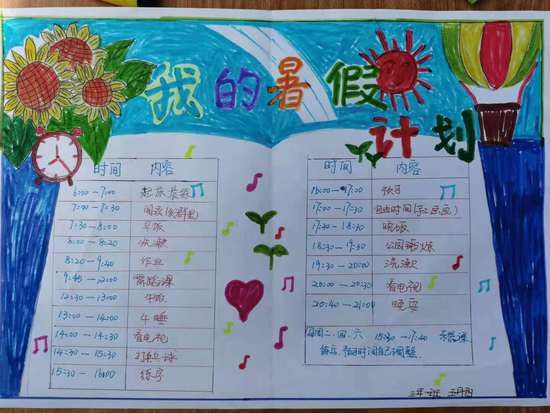 我的暑假计划
时间 内容
6:00—7:00 起床
7:00—7:30 阅读
7:30—8:00 早饭
8:00—8:20 休息
8:20—9:40 作业
9:45—12:00 舞蹈课
12:30—13:00 午饭
13:00—14:00 午睡
14:00—14:30 看电视
14:30—15:30 打乒乓球
15:30—16:00 练字
时间 内容
16:00—17:00
17:00—17:30 自由时间
17:30—18:30 晚饭
18:30—19:30 公园锻炼
19:30—20:00 洗漱
20:00—20:30 看电视
20:40—21:00 睡觉
每周二、四、六 15:30—17:40
时间自己调整